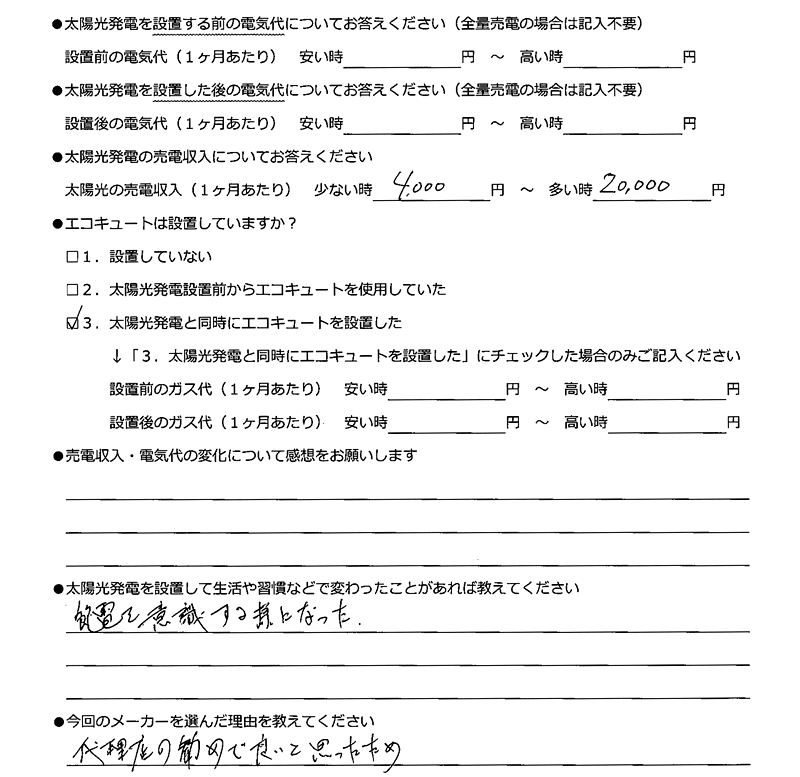 ●太陽光発電を設置する前の電気代についてお答えください（全量売電の場合は記入不要）
設置前の電気代（１ヶ月あたり） 安い時 円 ～ 高い時 円
●太陽光発電を設置した後の電気代についてお答えください（全量売電の場合は記入不要）
設置後の電気代（１ヶ月あたり） 安い時 円 ～ 高い時 円
●太陽光発電の売電収入についてお答えください
太陽光の売電収入（１ヶ月あたり） 少ない時 4,000 円 ～ 多い時 20,000 円
●エコキュートは設置していますか？
□１．設置していない
□２．太陽光発電設置前からエコキュートを使用していた
☑３．太陽光発電と同時にエコキュートを設置した
↓「３．太陽光発電と同時にエコキュートを設置した」にチェックした場合のみご記入ください
設置前のガス代（１ヶ月あたり） 安い時 円 ～ 高い時 円
設置後のガス代（１ヶ月あたり） 安い時 円 ～ 高い時 円
●売電収入・電気代の変化について感想をお願いします
●太陽光発電を設置して生活や習慣などで変わったことがあれば教えてください
を意識する様になった.
●今回のメーカーを選んだ理由を教えてください
代理店の勧めで良いと思ったため